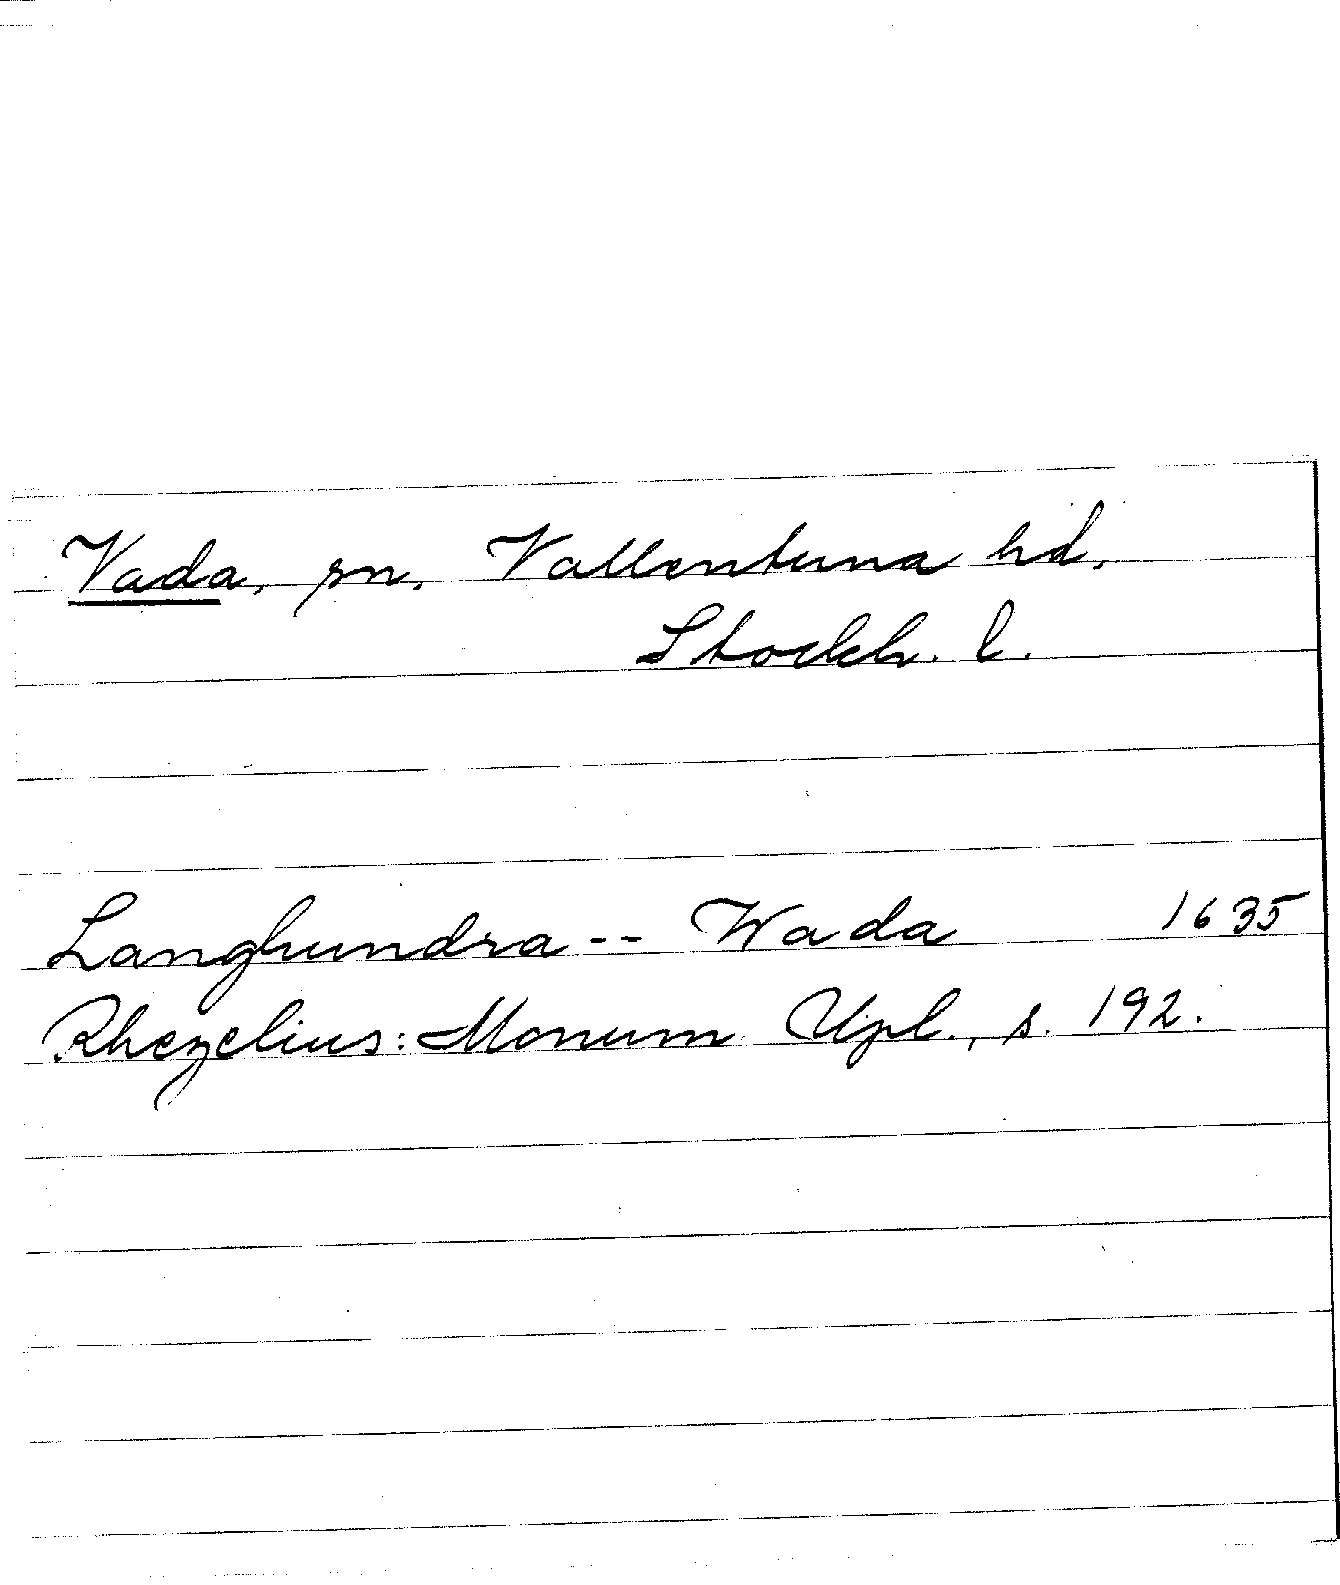 Vada, sn, Vallentuna hd,
Stockh. l.
Langhundra -- Wada 1635
Rhezelius: Monum Upl., s. 192.